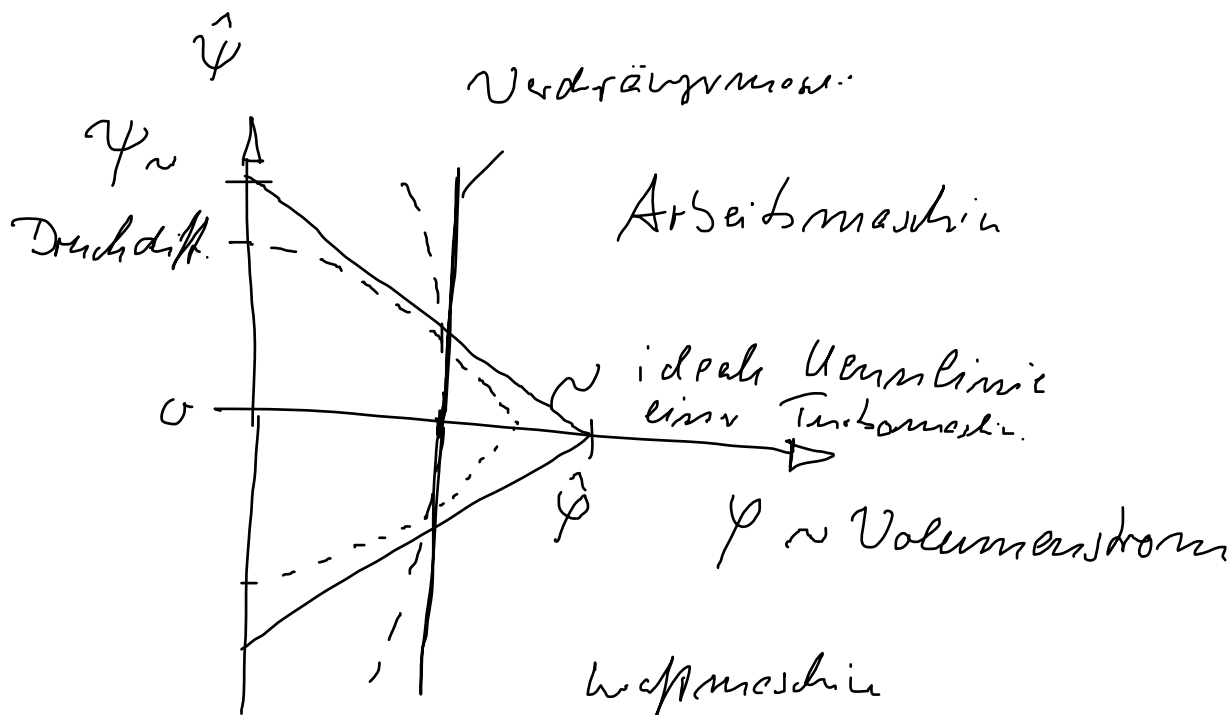 ψ̂
Verdrängermasch.
ψ ~
Druckdiff.
Arbeitsmaschin
0
ideale Kennlinie
einer Turbomaschin.
φ̂
φ ~ Volumenstrom
Kraftmaschin